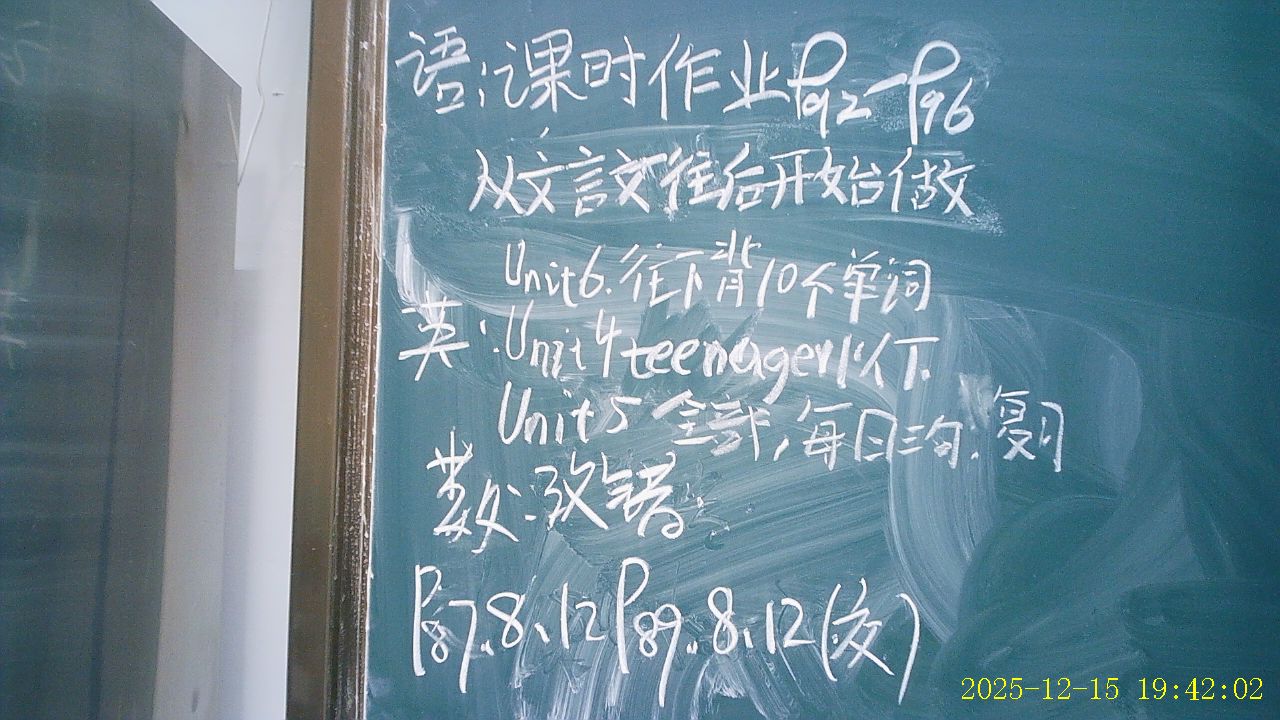 语:课时作业P92-P96
从文言文往后开始做
Unit6.往下背10个单词
英:Unit4teenager以下.
Unit5全部,每日三句.复习
数:改错.
P87.8、12P89.8、12(交)
2025-12-15 19:42:02